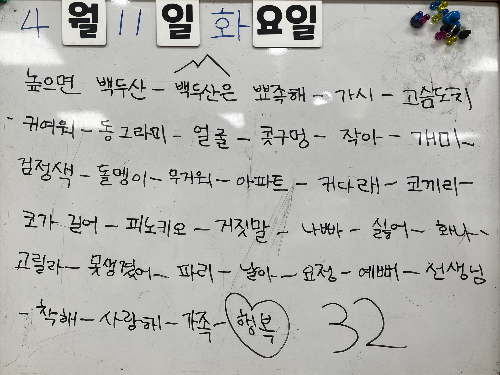 4 월 11 일 화 요일
높으면 백두산 - 백두산은 뾰족해 - 가시 - 고슴도치
- 귀여워 - 동그라미 - 얼굴 - 콧구멍 - 작아 - 개미 -
검정색 - 돌멩이 - 무거워 - 아파트 - 커다래 - 코끼리 -
코가 길어 - 피노키오 - 거짓말 - 나빠 - 싫어 - 화나 -
고릴라 - 못생겼어 - 파리 - 날아 - 요정 - 예뻐 - 선생님
- 착해 - 사랑해 - 가족 - 행복 32